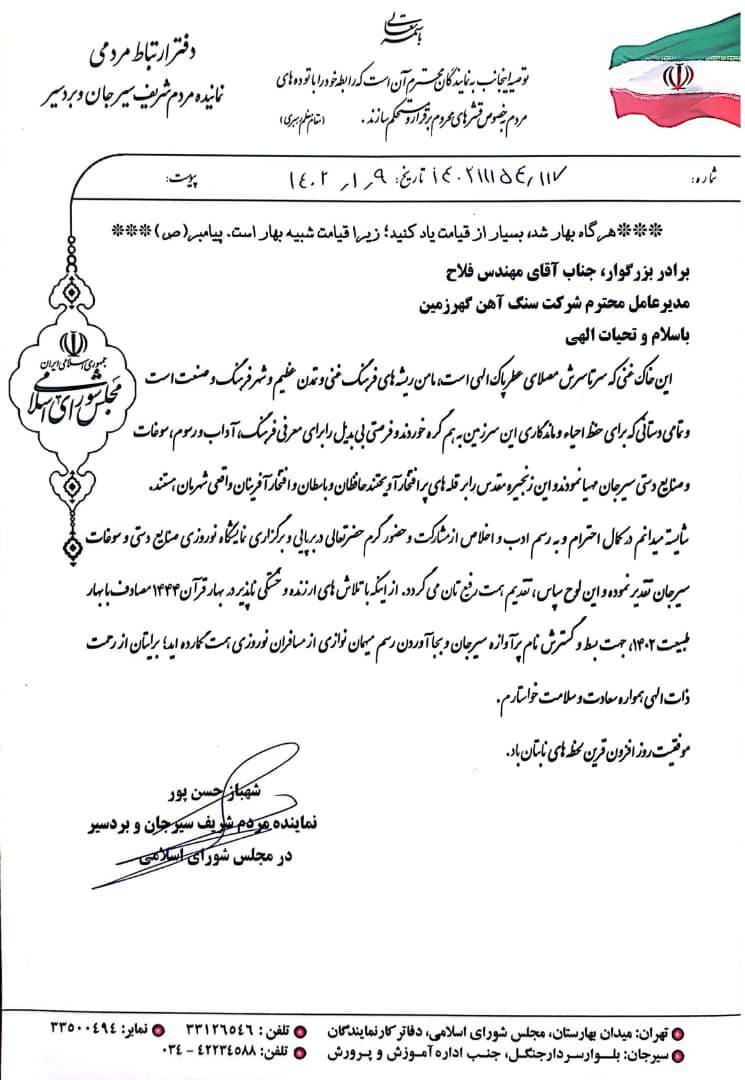 باسمه تعالی
دفتر ارتباط مردمی
نماینده مردم شریف سیرجان و بردسیر
توصیه اینجانب به نمایندگان محترم آن است که رابطه خود را با توده های
مردم به خصوص قشرهای محروم برقرار و مستحکم سازند. (مقام معظم رهبری)
شماره: ۱۴۰۲۱۱۱۵۴/۱۱۷ تاریخ: ۱۴۰۲/۱/۹ پیوست:
***هر گاه بهار شد، بسیار از قیامت یاد کنید؛ زیرا قیامت شبیه بهار است. پیامبر(ص)***
برادر بزرگوار، جناب آقای مهندس فلاح
مدیرعامل محترم شرکت سنگ آهن گهرزمین
باسلام و تحیات الهی
این خاک غنی که سرتاسرش مصلای عطر پاک الهی است، مامن ریشه های فرهنگ غنی و تمدن عظیم و شهر فرهنگ و صنعت است
و تمامی دستانی که برای حفظ احیاء و ماندگاری این سرزمین به هم گره خوردند و فرصتی بی بدیل را برای معرفی فرهنگ، آداب و رسوم، سوغات
و صنایع دستی سیرجان مهیا نمودند و این زنجیره مقدس را بر قله های پر افتخار آویختند حافظان و باسطان و افتخار آفرینان واقعی شهرمان هستند.
شایسته میدانم در کمال احترام و به رسم ادب و اخلاص از مشارکت و حضور گرم حضرتعالی در برپایی و برگزاری نمایشگاه نوروزی صنایع دستی و سوغات
سیرجان تقدیر نموده و این لوح سپاس، تقدیم همت رفیع تان می گردد. از اینکه با تلاش های ارزنده و خستگی ناپذیر در بهار قرآن ۱۴۴۴ مصادف با بهار
طبیعت ۱۴۰۲، جهت بسط و گسترش نام پرآوازه سیرجان و بجا آوردن رسم میهمان نوازی از مسافران نوروزی همت گمارده اید؛ برایتان از رحمت
ذات الهی همواره سعادت و سلامت خواستارم.
موفقیت روز افزون قرین لحظه های نابتان باد.
جمهوری اسلامی ایران
مجلس شورای اسلامی
شهباز حسن پور
نماینده مردم شریف سیرجان و بردسیر
در مجلس شورای اسلامی
تهران: میدان بهارستان، مجلس شورای اسلامی، دفاتر کار نمایندگان تلفن: ۳۳۱۲۶۵۴۶ نمابر: ۳۳۵۰۰۴۹۴
سیرجان: بلوار سردار جنگل، جنب اداره آموزش و پرورش تلفن: ۴۲۲۳۴۵۸۸ - ۰۳۴